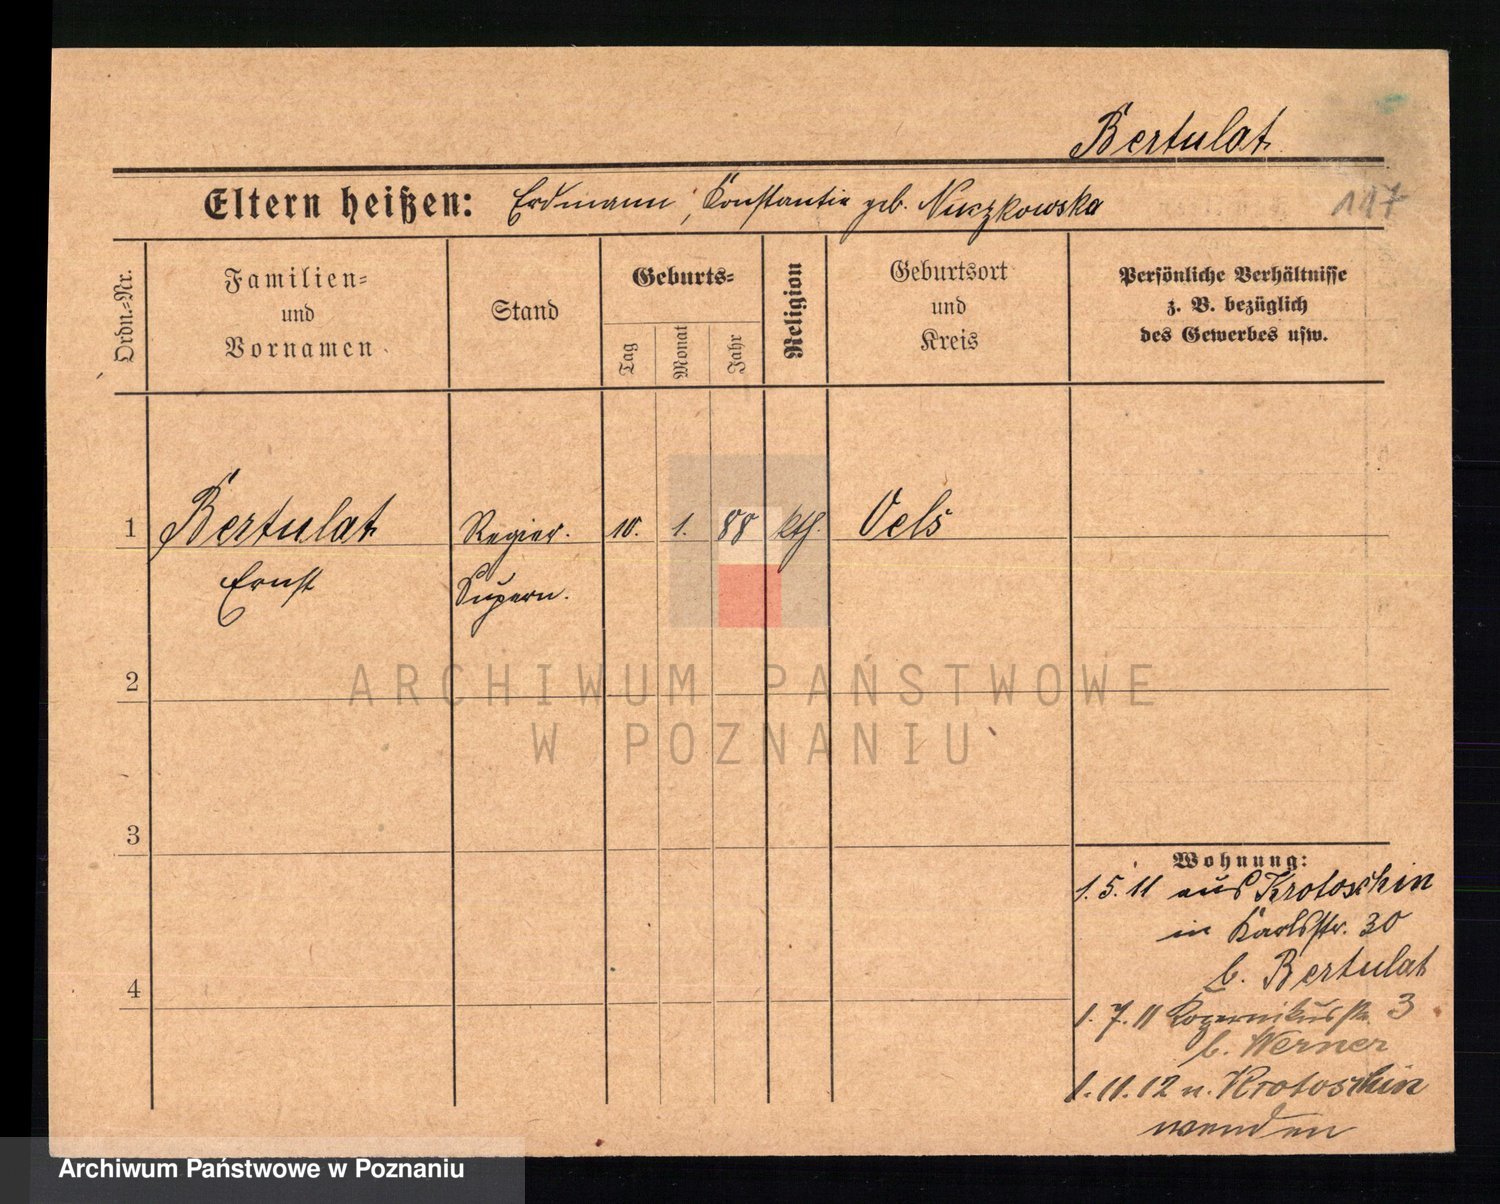 Bertulat
Eltern heißen: Erdmann, Konstantin geb. Nuczkowska
117
Ordn.=Nr.
Familien=
und
Vornamen
Stand
Geburts=
Tag
Monat
Jahr
Religion
Geburtsort
und
Kreis
Persönliche Verhältnisse
z. B. bezüglich
des Gewerbes usw.
1
Bertulat
Ernst
Regier.
Supern.
10.
1.
88
kth.
Oels
2
3
4
Wohnung:
1.5.11 aus Krotoschin
in Karlstr. 30
b. Bertulat
1.7.11 Kopernikusstr. 3
b. Werner
1.11.12 n. Krotoschin
wenden
ARCHIWUM PAŃSTWOWE
W POZNANIU
Archiwum Państwowe w Poznaniu